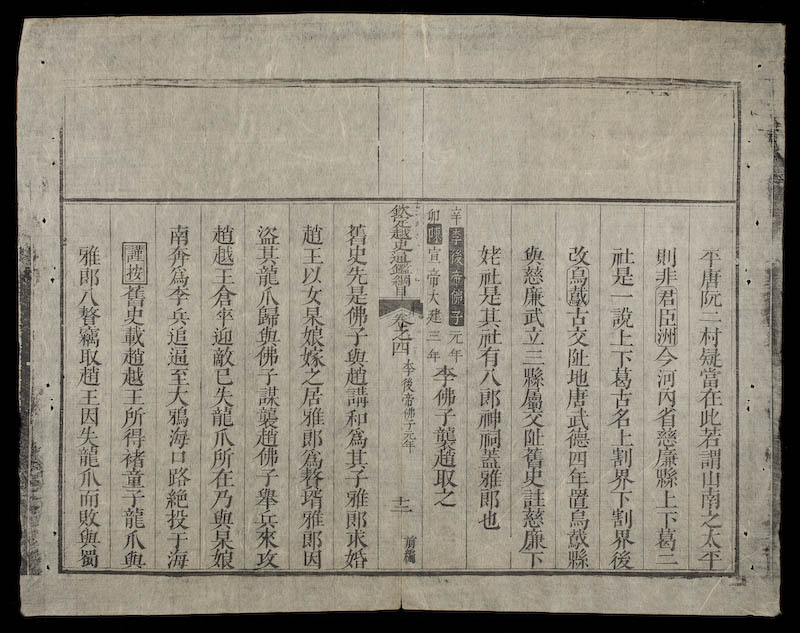 平唐阮二村疑當在此若謂山南之太平
則非君臣洲今河內省慈廉縣上下葛二
社是一說上下葛古名上割界下割界後
改烏鳶古交阯地唐武德四年置烏鳶縣
與慈廉武立三縣屬交阯舊史註慈廉下
姥社是其社有八郎神祠蓋雅郎也
辛李後帝佛子元年
卯陳宣帝大建三年
李佛子襲趙取之
欽定越史通鑑綱目 卷之四 李後帝佛子元年 十二 前編
舊史先是佛子與趙講和爲其子雅郎求婚
趙王以女杲娘嫁之居雅郎爲贅壻雅郎因
盜其龍爪歸與佛子謀襲趙佛子舉兵來攻
趙越王倉卒迎敵已失龍爪所在乃與杲娘
南奔爲李兵追逼至大鴉海口路絶投于海
謹按舊史載趙越王所得褚童子龍爪與
雅郎入贅竊取趙王因失龍爪而敗與蜀